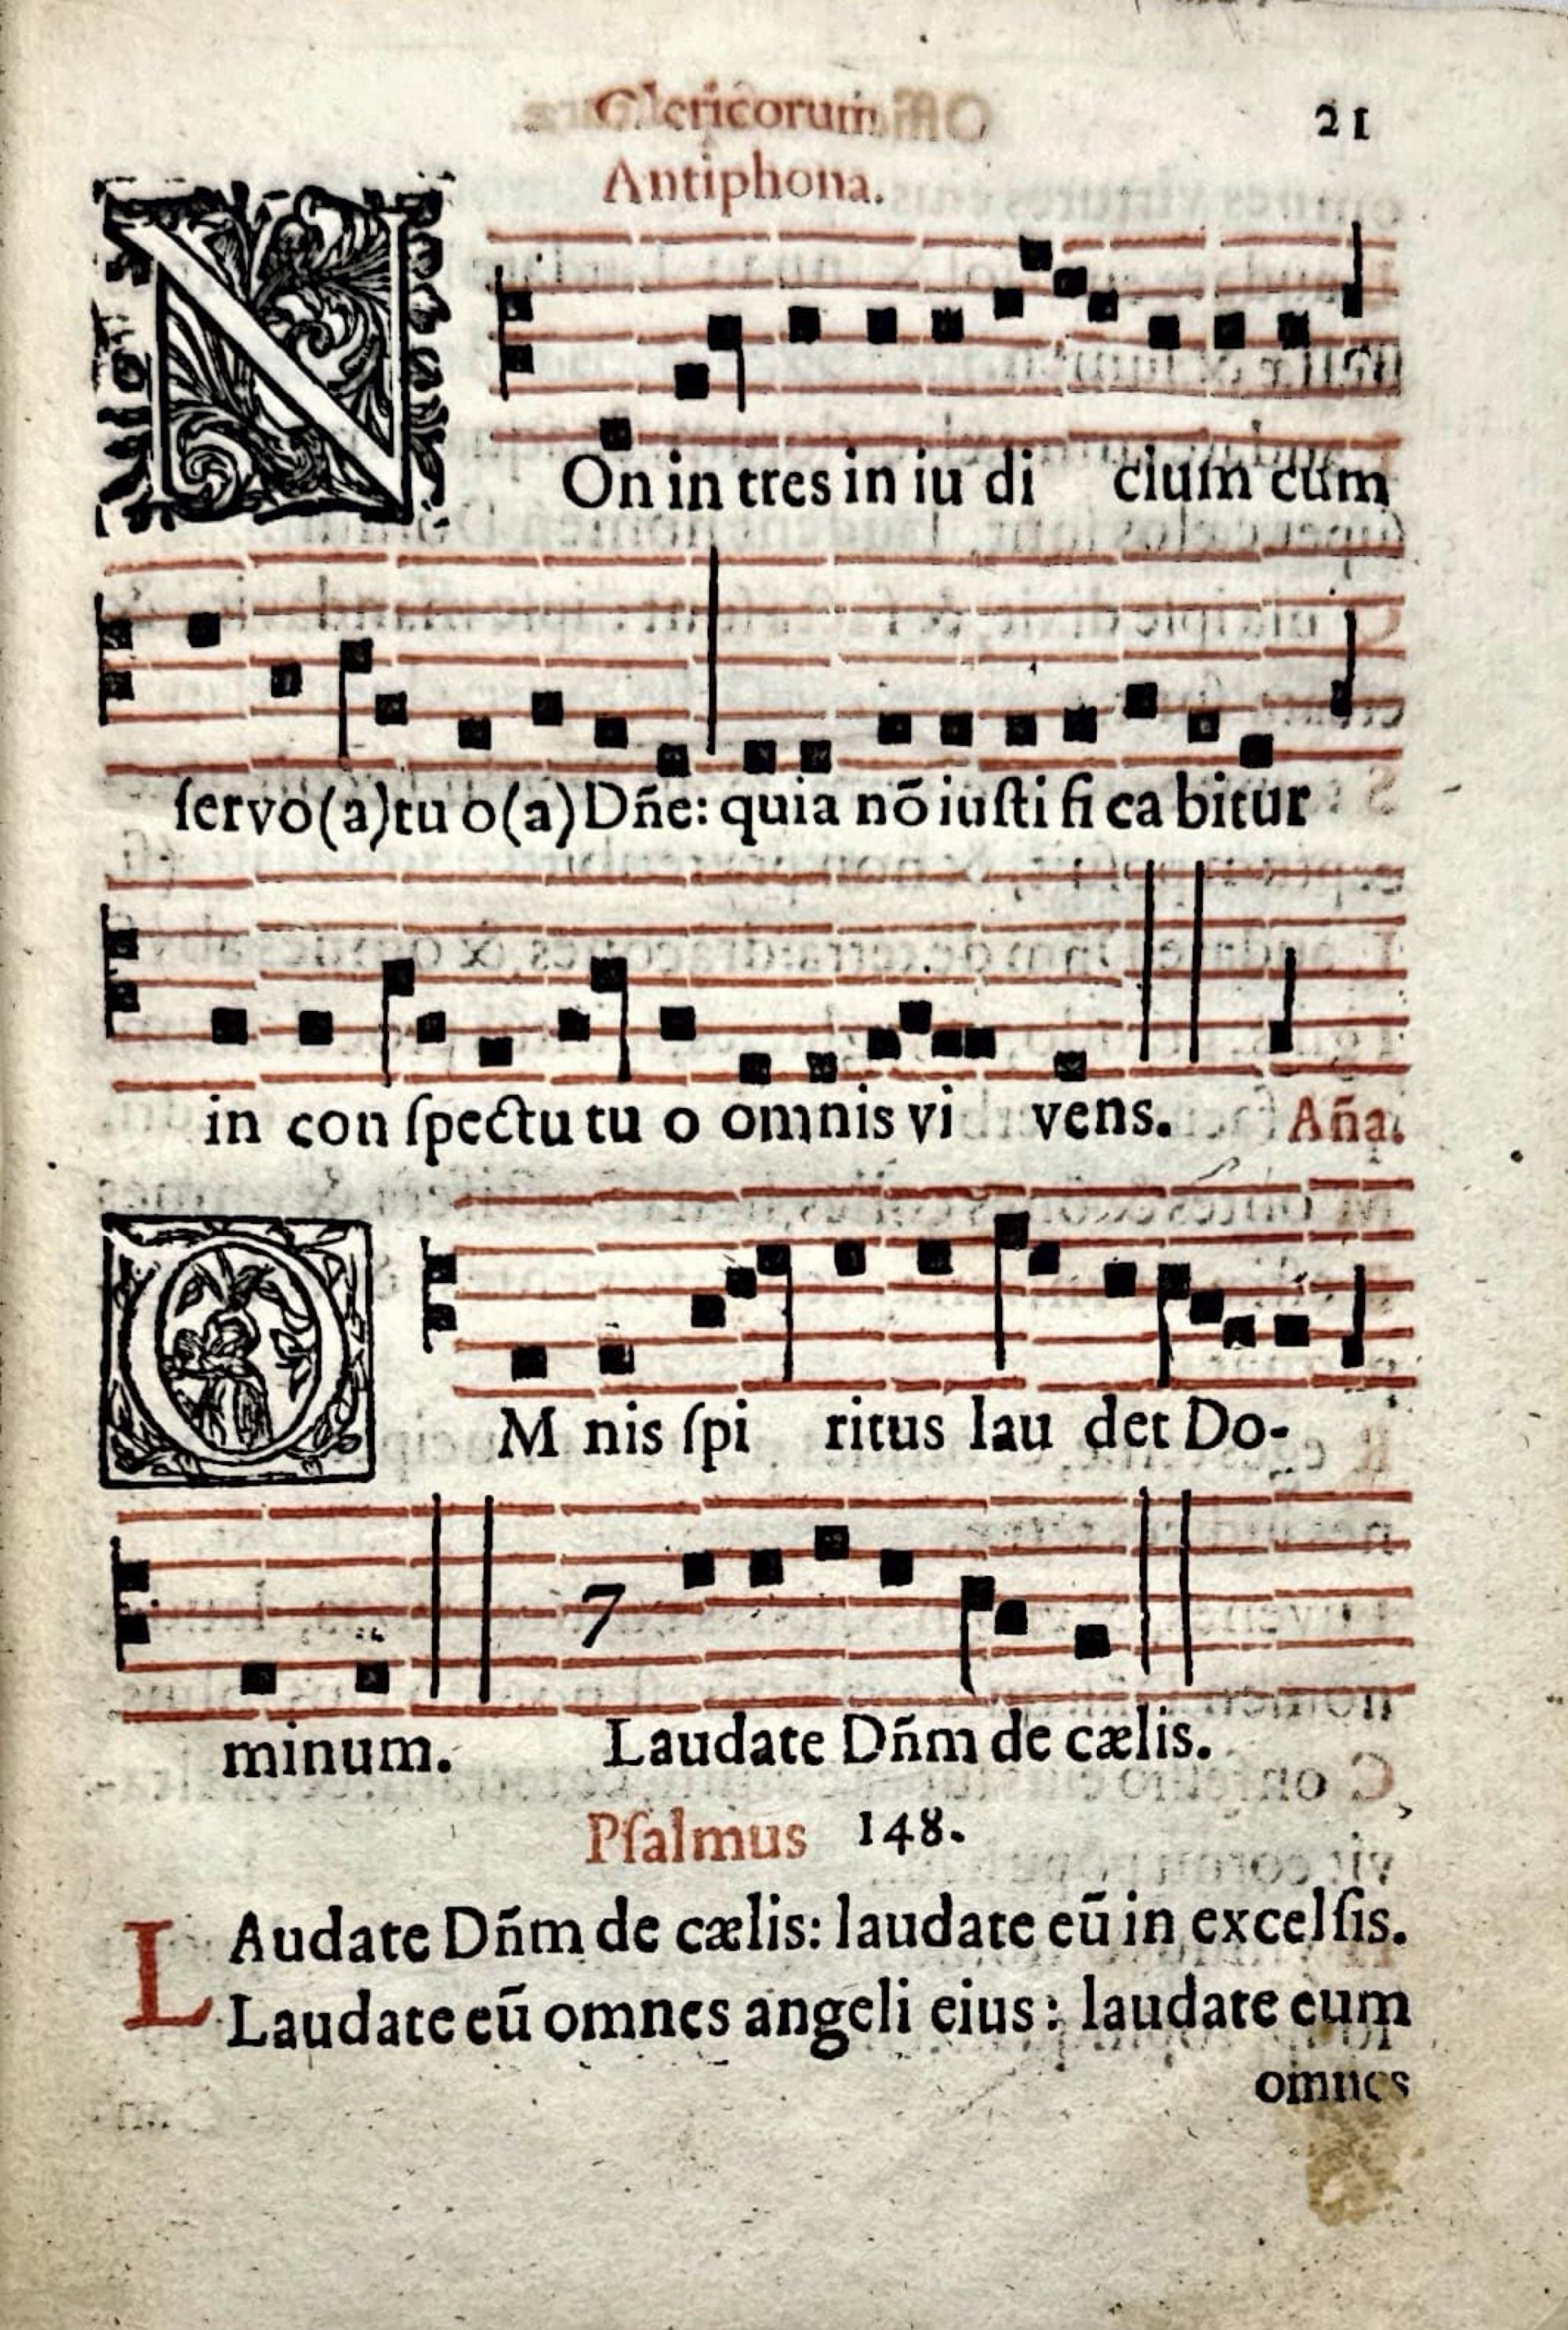 Clericorum
21
Antiphona.
NOn in tres in iu di cium cum
ſervo(a)tu o(a) Dñe: quia nō iuſti fi ca bitur
in con ſpectu tu o omnis vi vens. Aña.
OM nis ſpi ritus lau det Do-
7
minum. Laudate Dñm de cælis.
Pſalmus 148.
LAudate Dñm de cælis: laudate eū in excelſis.
Laudate eū omnes angeli eius: laudate eum
omnes